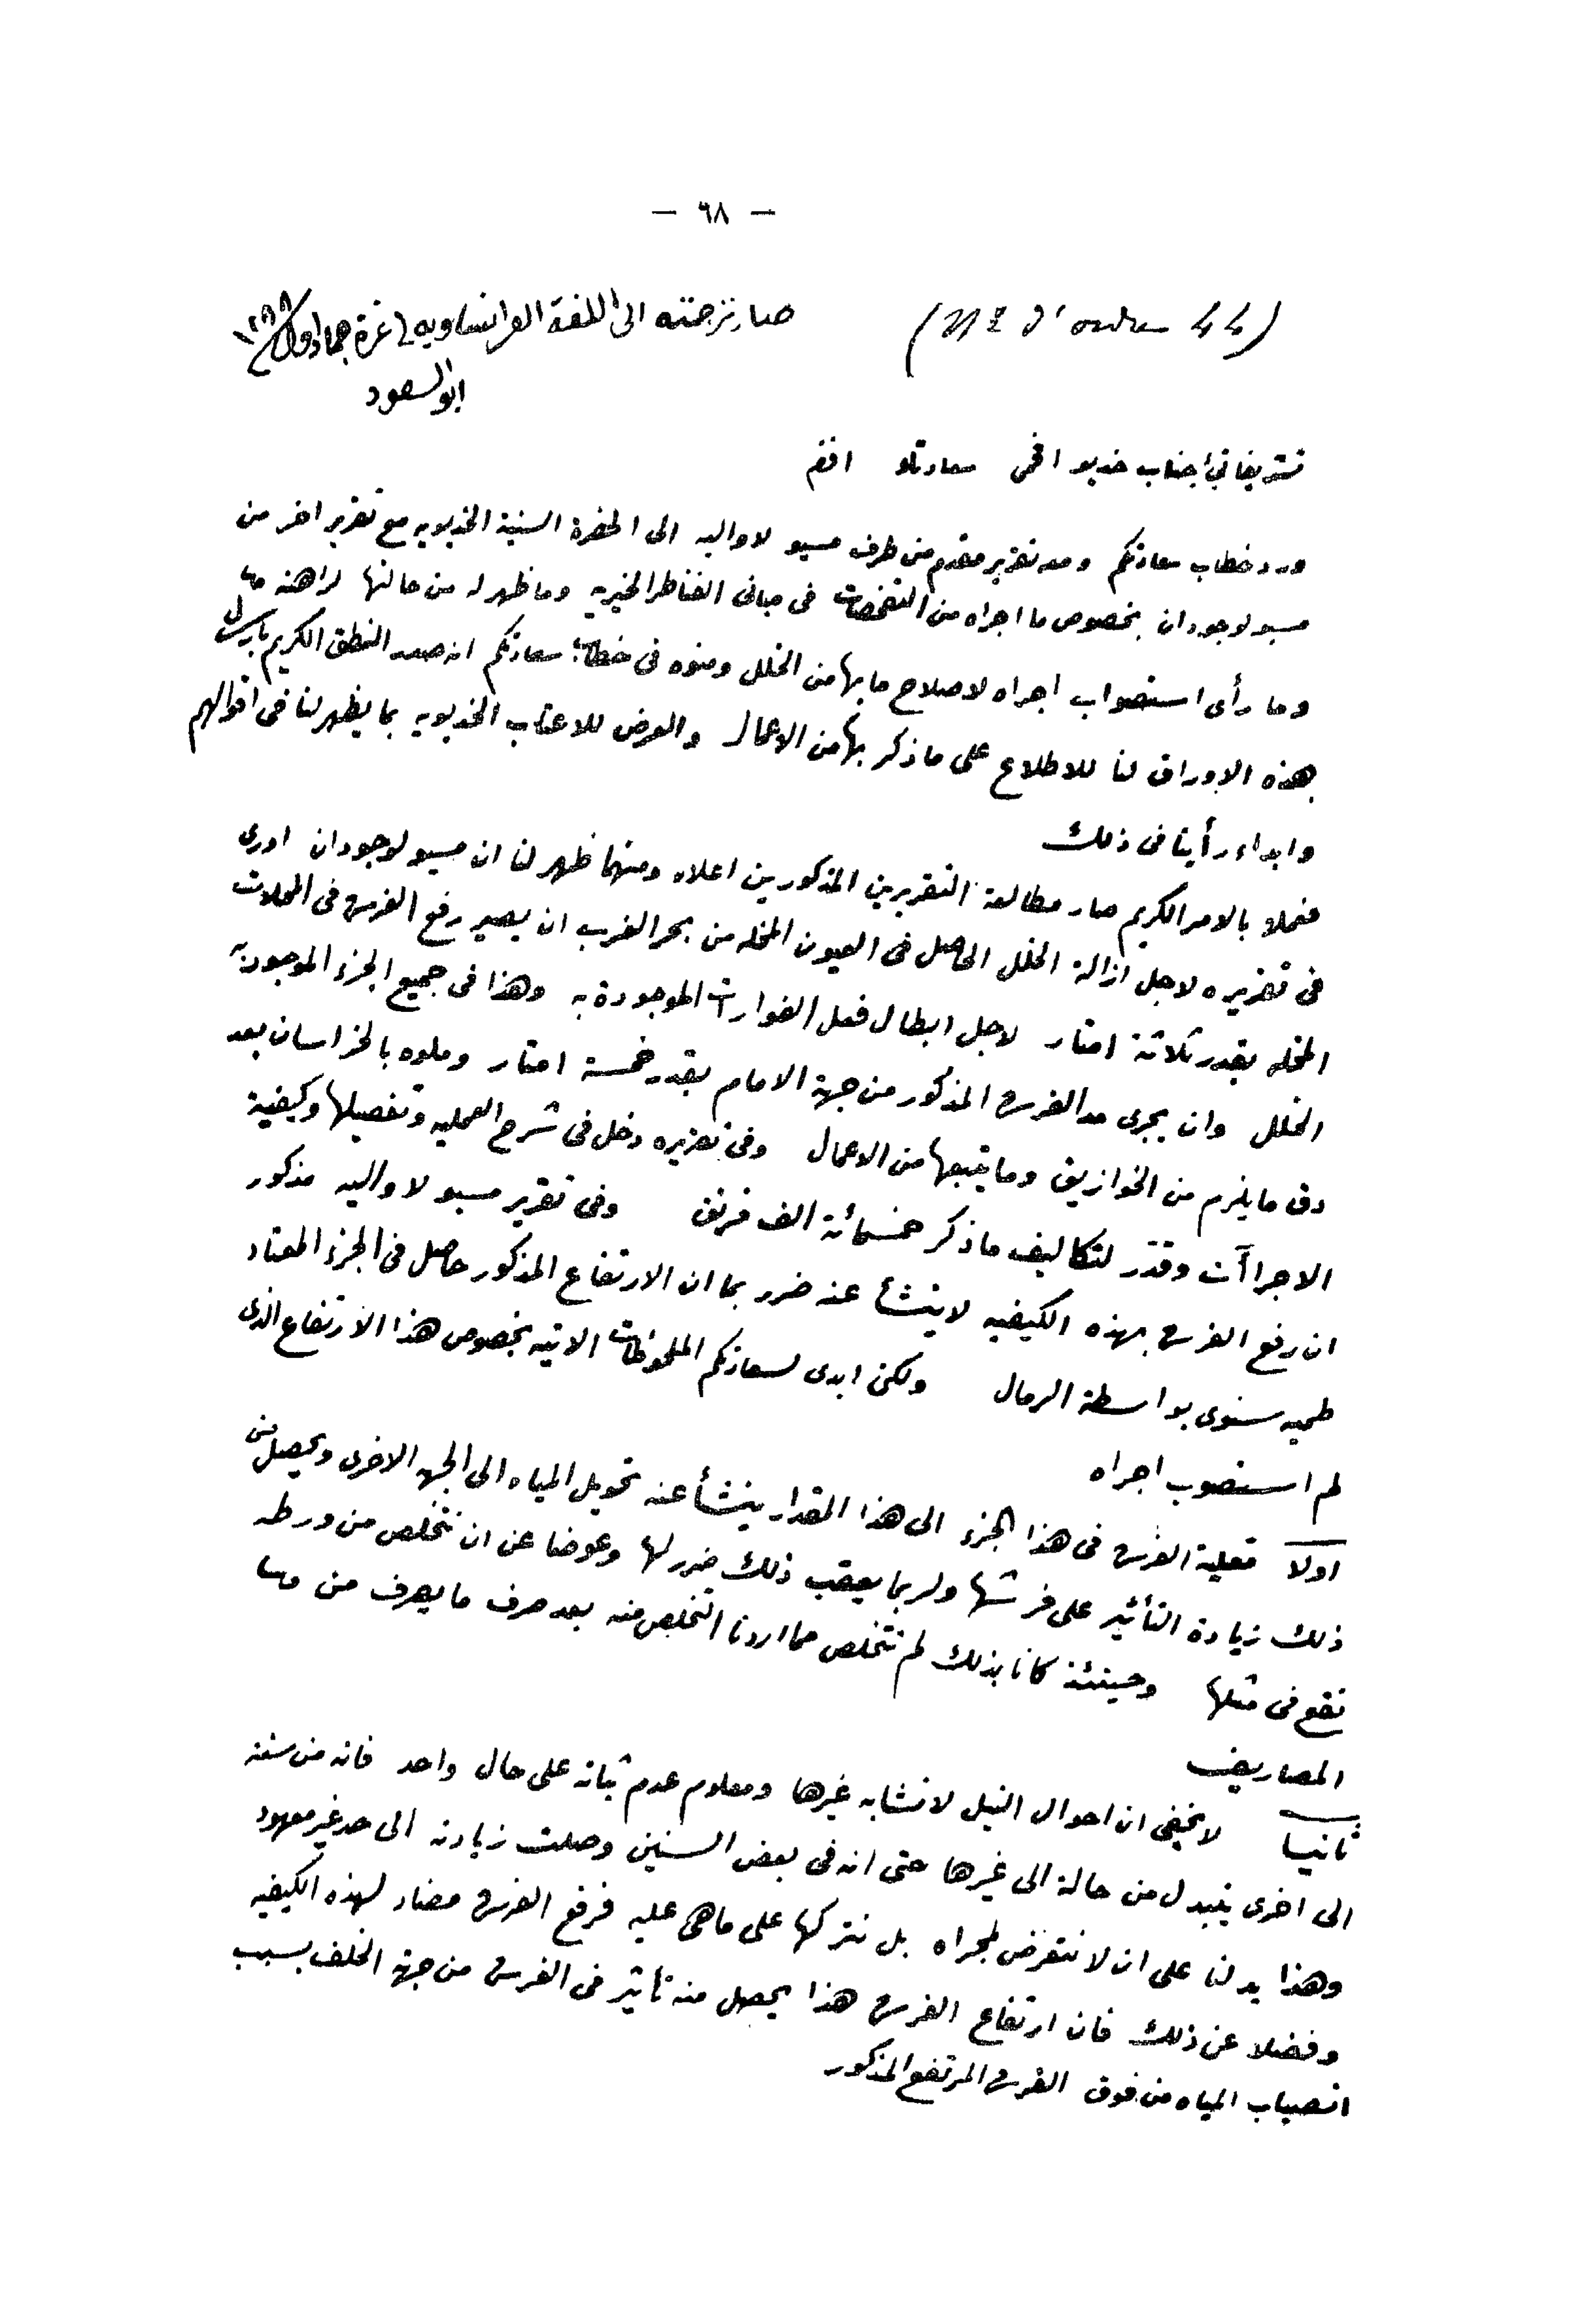 — ٦٨ —
(Nº d'ordre 44)
صار ترجمته الى اللغة الفرانساويه في غرة جماد اول ١٢٨٨
ابو السعود
تشريفاتي جناب خديو افخمى سعادتلو افندم
ورد خطاب سعادتكم ومعه تقرير مقدم من طرف مسيو لاواليه الى الحضرة السنية الخديويه مع تقرير اخر من
مسيو لوجودان بخصوص ما اجراه من التفحصات فى مبانى القناطر الخيريه وما ظهر له من حالتها الراهنه
وما رأى استصواب اجراه لاصلاح ما بها من الخلل ومنوه فى خطاب سعادتكم انه صدر النطق الكريم بارسال
هذه الاوراق لنا للاطلاع على ما ذكر بها من الاعمال والعرض للاعتاب الخديويه بما يظهر لنا فى اقوالهم
وابداء رأينا فى ذلك
فعملا بالامر الكريم صار مطالعة التقريرين المذكورين اعلاه ومنهما ظهر لنا ان مسيو لوجودان اورى
فى تقريره لاجل ازالة الخلل الحاصل فى العيون المختله من بحر الغرب ان يصير رفع الفرش فى المحلات
المختله بقدر ثلاثة امتار لاجل ابطال فعل الفوارات الموجودة به وهذا فى جميع الجزء الموجود به
الخلل وان يجرى مد الفرش المذكور من جهة الامام بقدر خمسة امتار وملوه بالخراسان بعد
دق ما يلزم من الخوازيق وما يتبعها من الاعمال وفى تقريره دخل فى شرح العمليه وتفصيلها وكيفية
الاجراآت وقدر لتكاليف ما ذكر خمسمائة الف فرنق وفى تقرير مسيو لاواليه مذكور
ان رفع الفرش بهذه الكيفيه لا ينشأ عنه ضرر بما ان الارتفاع المذكور حاصل فى الجزء المعتاد
طميه سنوى بواسطة الرمال ولكن ابدى لسعادتكم الملحوظات الاتيه بخصوص هذا الارتفاع الذى
لم استصوب اجراه
اولا تعلية الفرش فى هذا الجزء الى هذا المقدار ينشأ عنه تحويل المياه الى الجهة الاخرى ويحصل من
ذلك زيادة التأثير على فرشها ولربما يعقب ذلك ضرر لها وعوضا عن ان نتخلص من ورطه
نقع فى مثلها وحينئذ كانا بذلك لم نتخلص مما اردنا التخلص منه بعد صرف ما يصرف من
المصاريف
ثانيا لا يخفى ان احوال النيل لا تشابه غيرها ومعلوم عدم ثباته على حال واحد فانه من سنة
الى اخرى يتبدل من حالة الى غيرها حتى انه فى بعض السنين وصلت زيادته الى حد غير معهود
وهذا يدلنا على ان لا نتعرض لمجراه بل نتركها على ما هى عليه فرفع الفرش مضاد لهذه الكيفيه
وفضلا عن ذلك فان ارتفاع الفرش هذا يحصل منه تأثير فى الفرش من جهة الخلف بسبب
انصباب المياه من فوق الفرش المرتفع المذكور